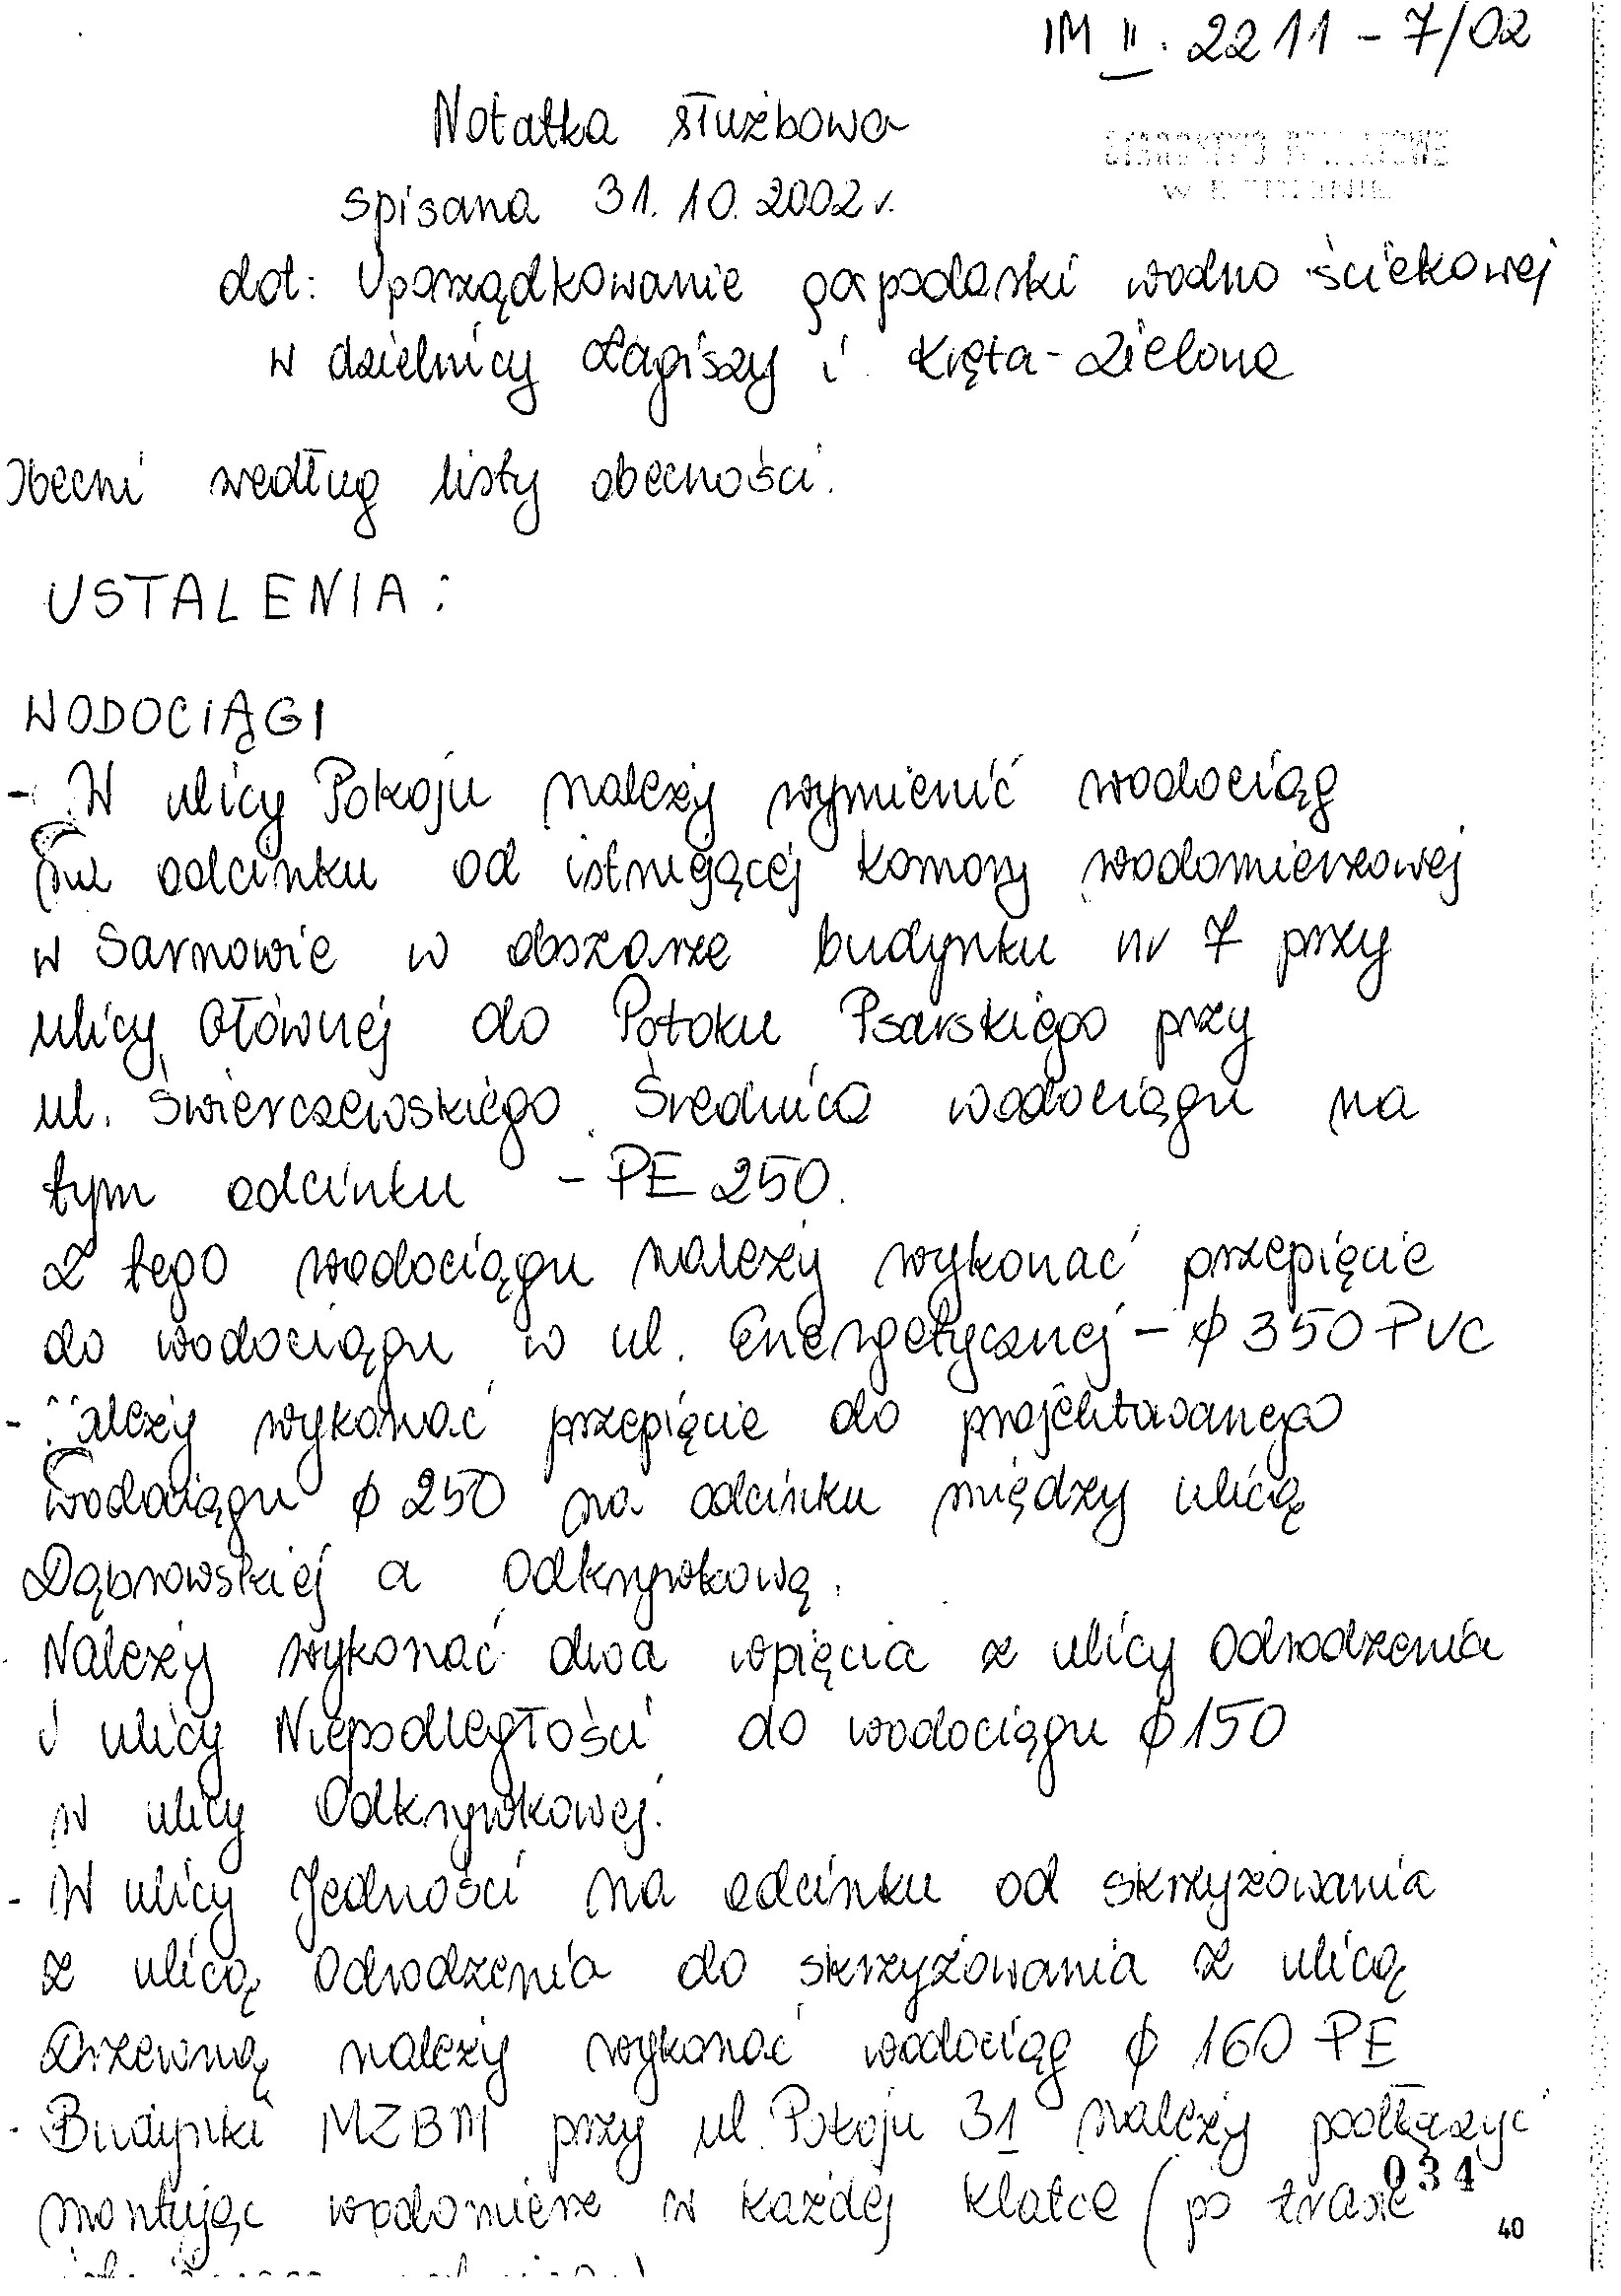 IM II. 2211 - 7/02
Notatka służbowa
STAROSTWO POWIATOWE
W BĘDZINIE
spisana 31. 10. 2002 r.
dot: Uporządkowanie gospodarki wodno ściekowej
w dzielnicy Łagiszy i Kręta-Zielona
Obecni według listy obecności.
USTALENIA:
WODOCIĄGI
- W ulicy Pokoju należy wymienić wodociąg
na odcinku od istniejącej komory wodomierzowej
w Sarnowie w obszarze budynku nr 7 przy
ulicy Głównej do Potoku Psarskiego przy
ul. Świerczewskiego. Średnica wodociągu na
tym odcinku - PE 250.
Z tego wodociągu należy wykonać przepięcie
do wodociągu w ul. Energetycznej - φ 350 PVC
- Należy wykonać przepięcie do projektowanego
wodociągu φ 250 na odcinku między ulicą
Dąbrowskiej a Odkrywkową.
- Należy wykonać dwa wpięcia z ulicy Odrodzenia
i ulicy Niepodległości do wodociągu φ 150
w ulicy Odkrywkowej.
- W ulicy Jedności na odcinku od skrzyżowania
z ulicą Odrodzenia do skrzyżowania z ulicą
Drzewną należy wykonać wodociąg φ 160 PE
- Budynki MZBM przy ul. Pokoju 31 należy podłączyć
montując wodomierze w każdej klatce (po trasie
034
40